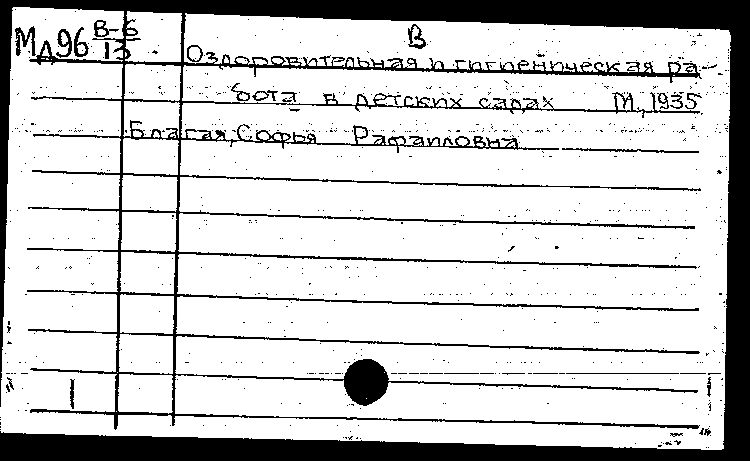 В
Мд96 В-6/13 Оздоровительная и гигиеническая ра-
бота в детских садах М., 1935
Благая, Софья Рафаиловна
1